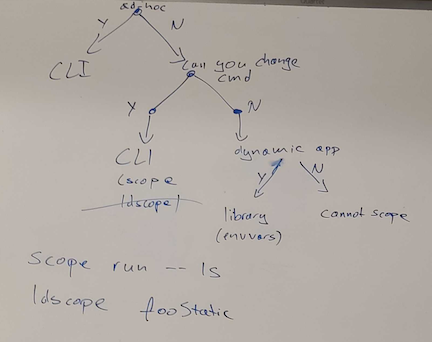 ad-hoc
Y N
CLI
Can you change
cmd
Y N
CLI
(scope
ldscope)
dynamic app
Y N
library
(envvars)
cannot scope
scope run -- ls
ldscope fooStatic